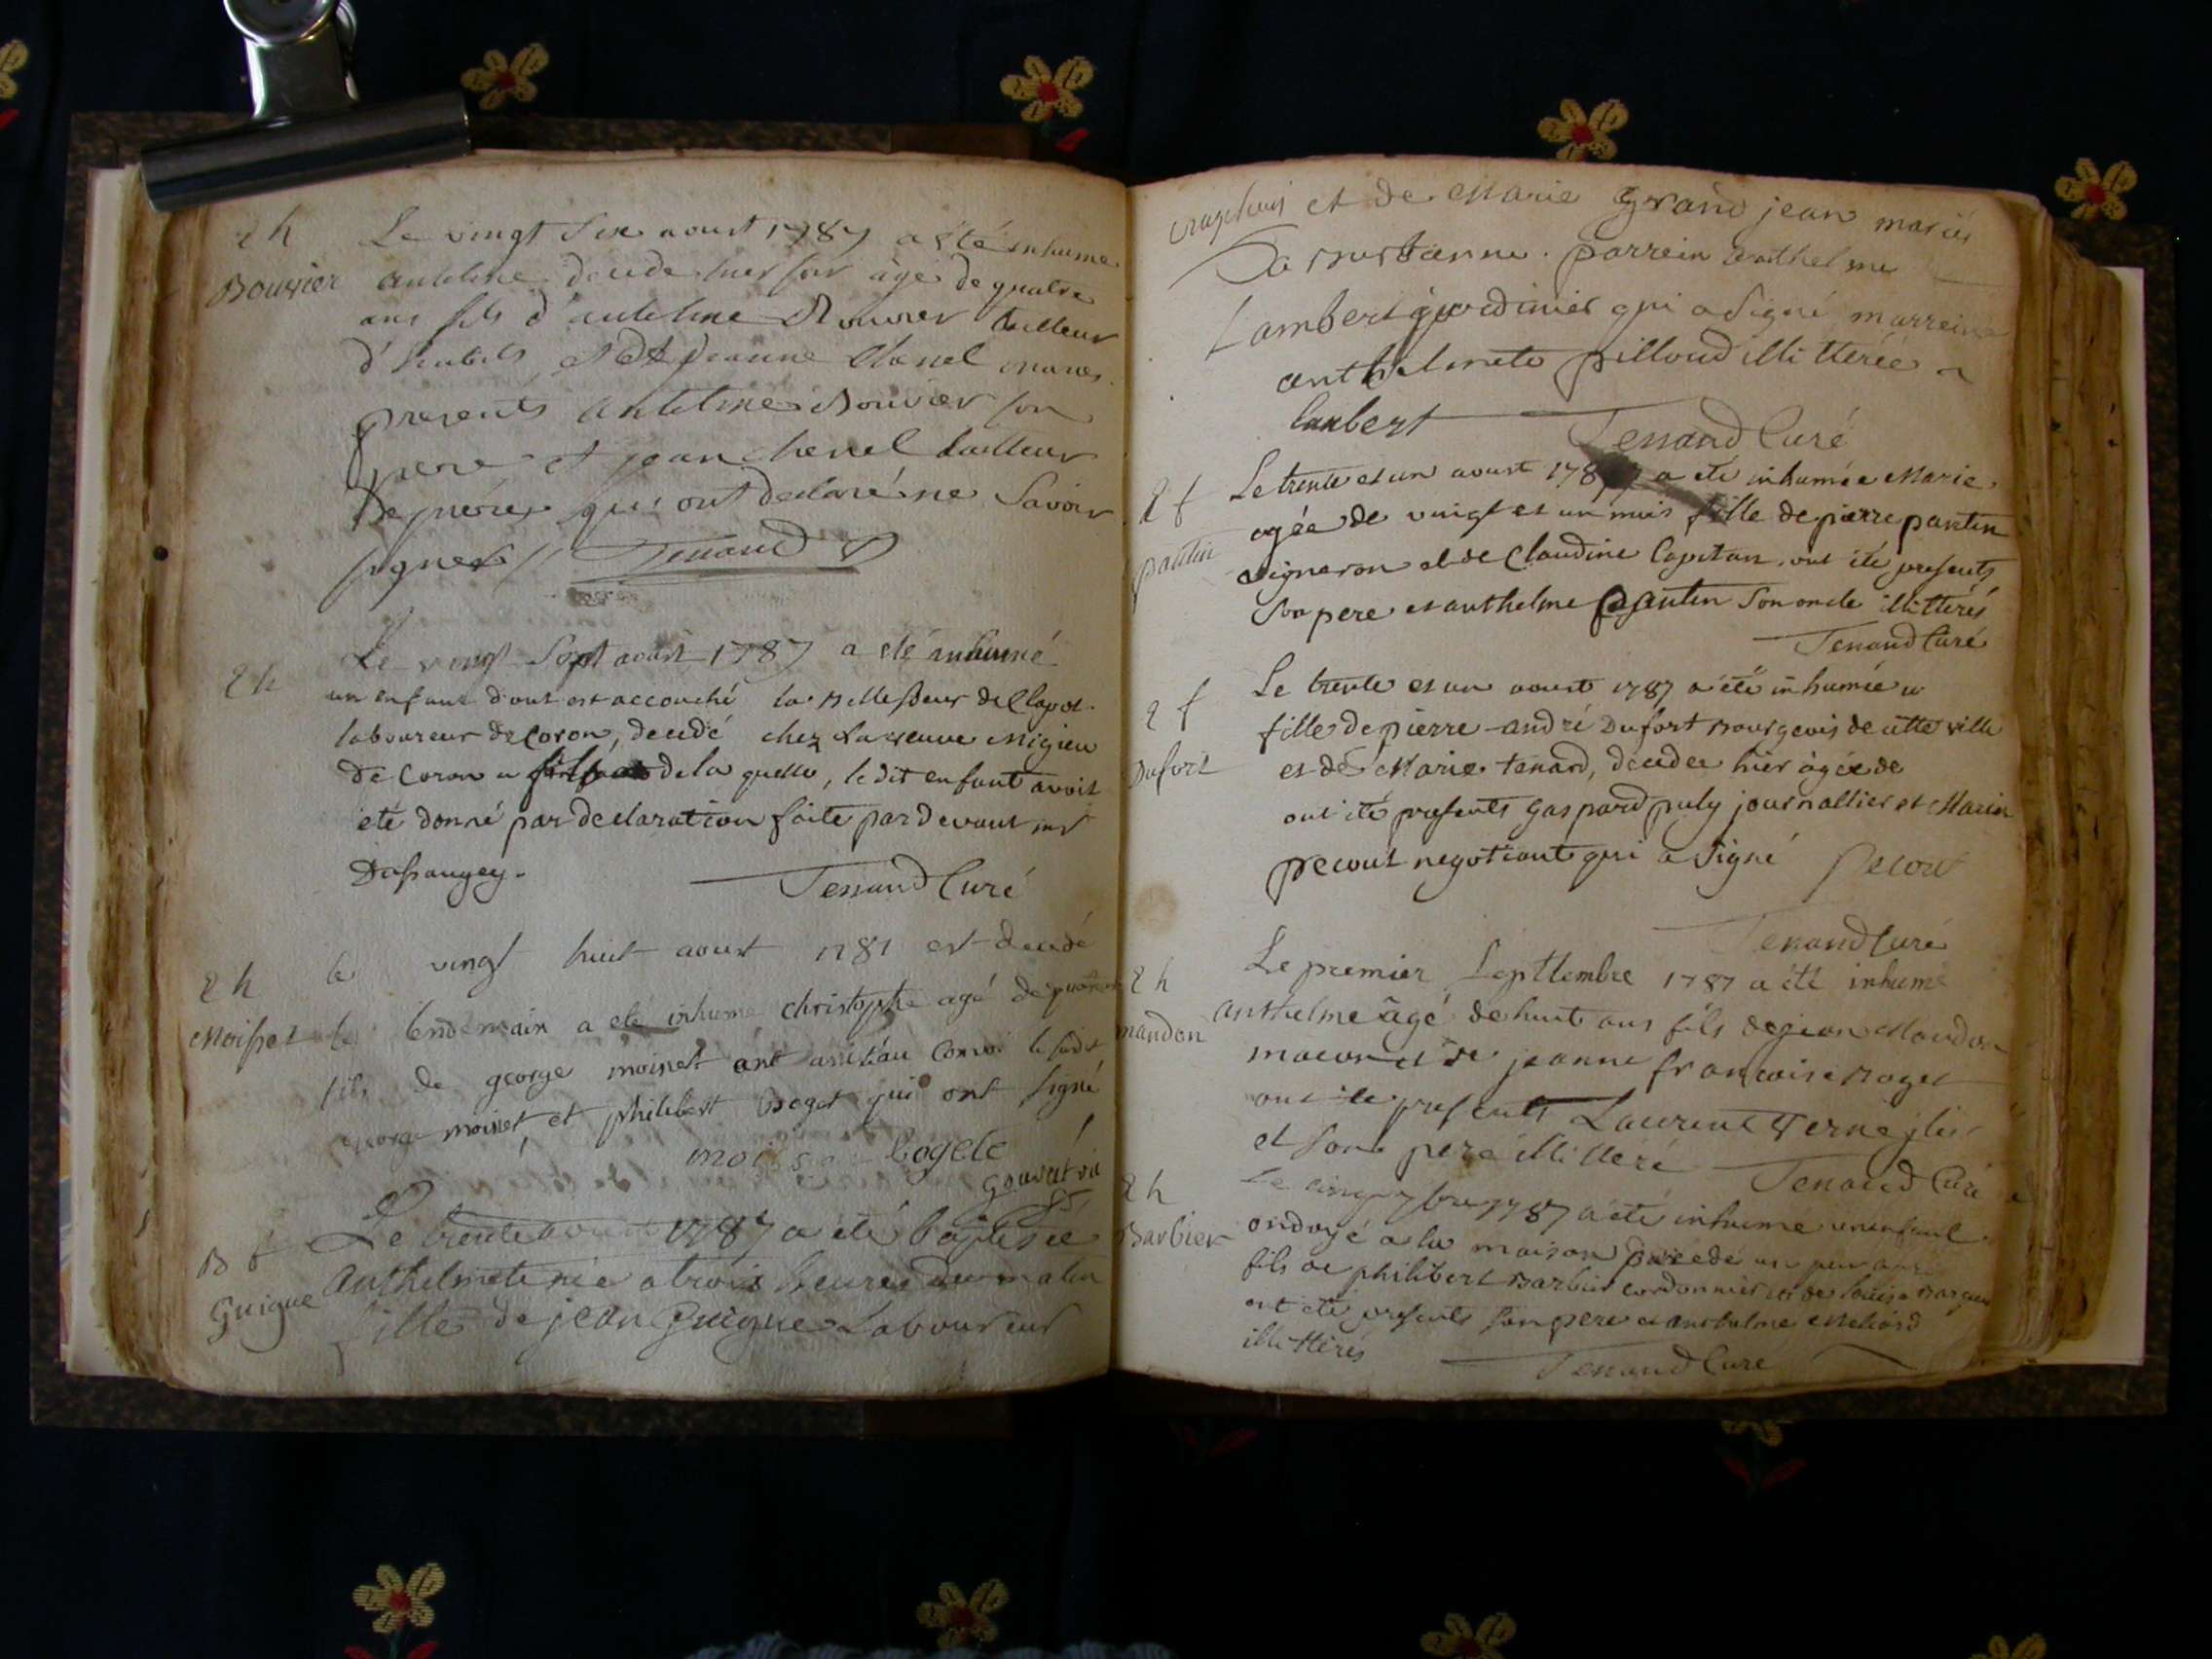 2 h
Bouvier
Le vingt six aoust 1787 a été inhumé
antelme decede hier soir âgé de quatre
ans fils d'antelme Bouvier tailleur
d'habits et de jeanne Chenel mariés
presents antelme Bouvier son
pere et jean chenel tailleur
qui ont declaré ne savoir
signer Tenand
2 h
Le vingt sept aoust 1787 a eté inhumé
un enfant dont est accouché la Belle soeur de Clapot
laboureur de Coron, decedé chez La veuve Migieu
de Coron a de la quelle, le dit enfant avoit
eté donné par declaration faite par devant mr
Dassangey.
Tenand Curé
2 h
Moisset
le vingt huit aoust 1787 est decedé
le lendemain a eté inhumé christophe agé de
fils de george moinet ont assisté au convoi le susdit
george moinet et philibert Boget qui ont signé
Bogete
B f
Guigue
Le trente aoust 1787 a été baptisée
Anthelmete née a trois heures du matin
fille de jean Guigue Laboureur
et de Marie Grand jean mariés
parrein anthelme
Lambert jardinier qui a signé marreine
anthelmete pilloud illitterée
lambert Tenand Curé
2 f
pantin
Le trente et un aoust 1787 a été inhumée Marie
agée de vingt et un mois fille de pierre pantin
vigneron et de Claudine Capitan, ont été presents
son pere et anthelme pantin son oncle illitterés
Tenand Curé
2 f
Dufort
Le trente et un aoust 1787 a été inhumée
fille de pierre-andré Dufort Bourgeois de cette ville
et de Marie tenard, decedée hier âgée de
ont été presents gaspard puly journallier et Marin
pecout negotiant qui a signé pecout
Tenand Curé
2 h
mandon
Le premier septtembre 1787 a été inhumé
anthelme âgé de huit ans fils de jean Mandon
macon et de jeanne francoise Roget
ont été presents Laurent
et son pere illitteré Tenand Curé
2 h
Barbier
Le cinq 7bre 1787 a été inhumé un enfant
ondoyé a la maison decedé un peu
fils de philibert Barbier cordonnier et de louise
ont été presents son pere et anthelme
illitterés
Tenand Curé